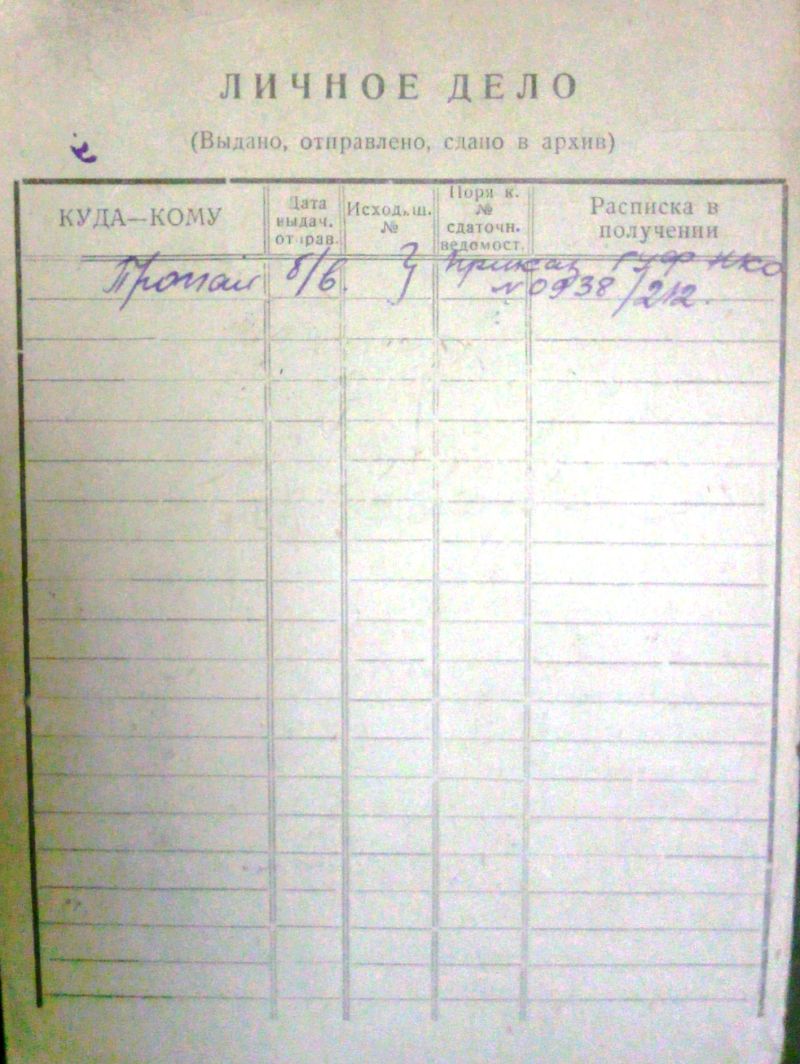 ЛИЧНОЕ ДЕЛО
(Выдано, отправлено, сдано в архив)
КУДА—КОМУ
Дата выдач. отправ.
Исходящ. №
Поряд к. № сдаточн. ведомост.
Расписка в получении
Пропал б/в. приказ ГУФ НКО
№ 0938/212.